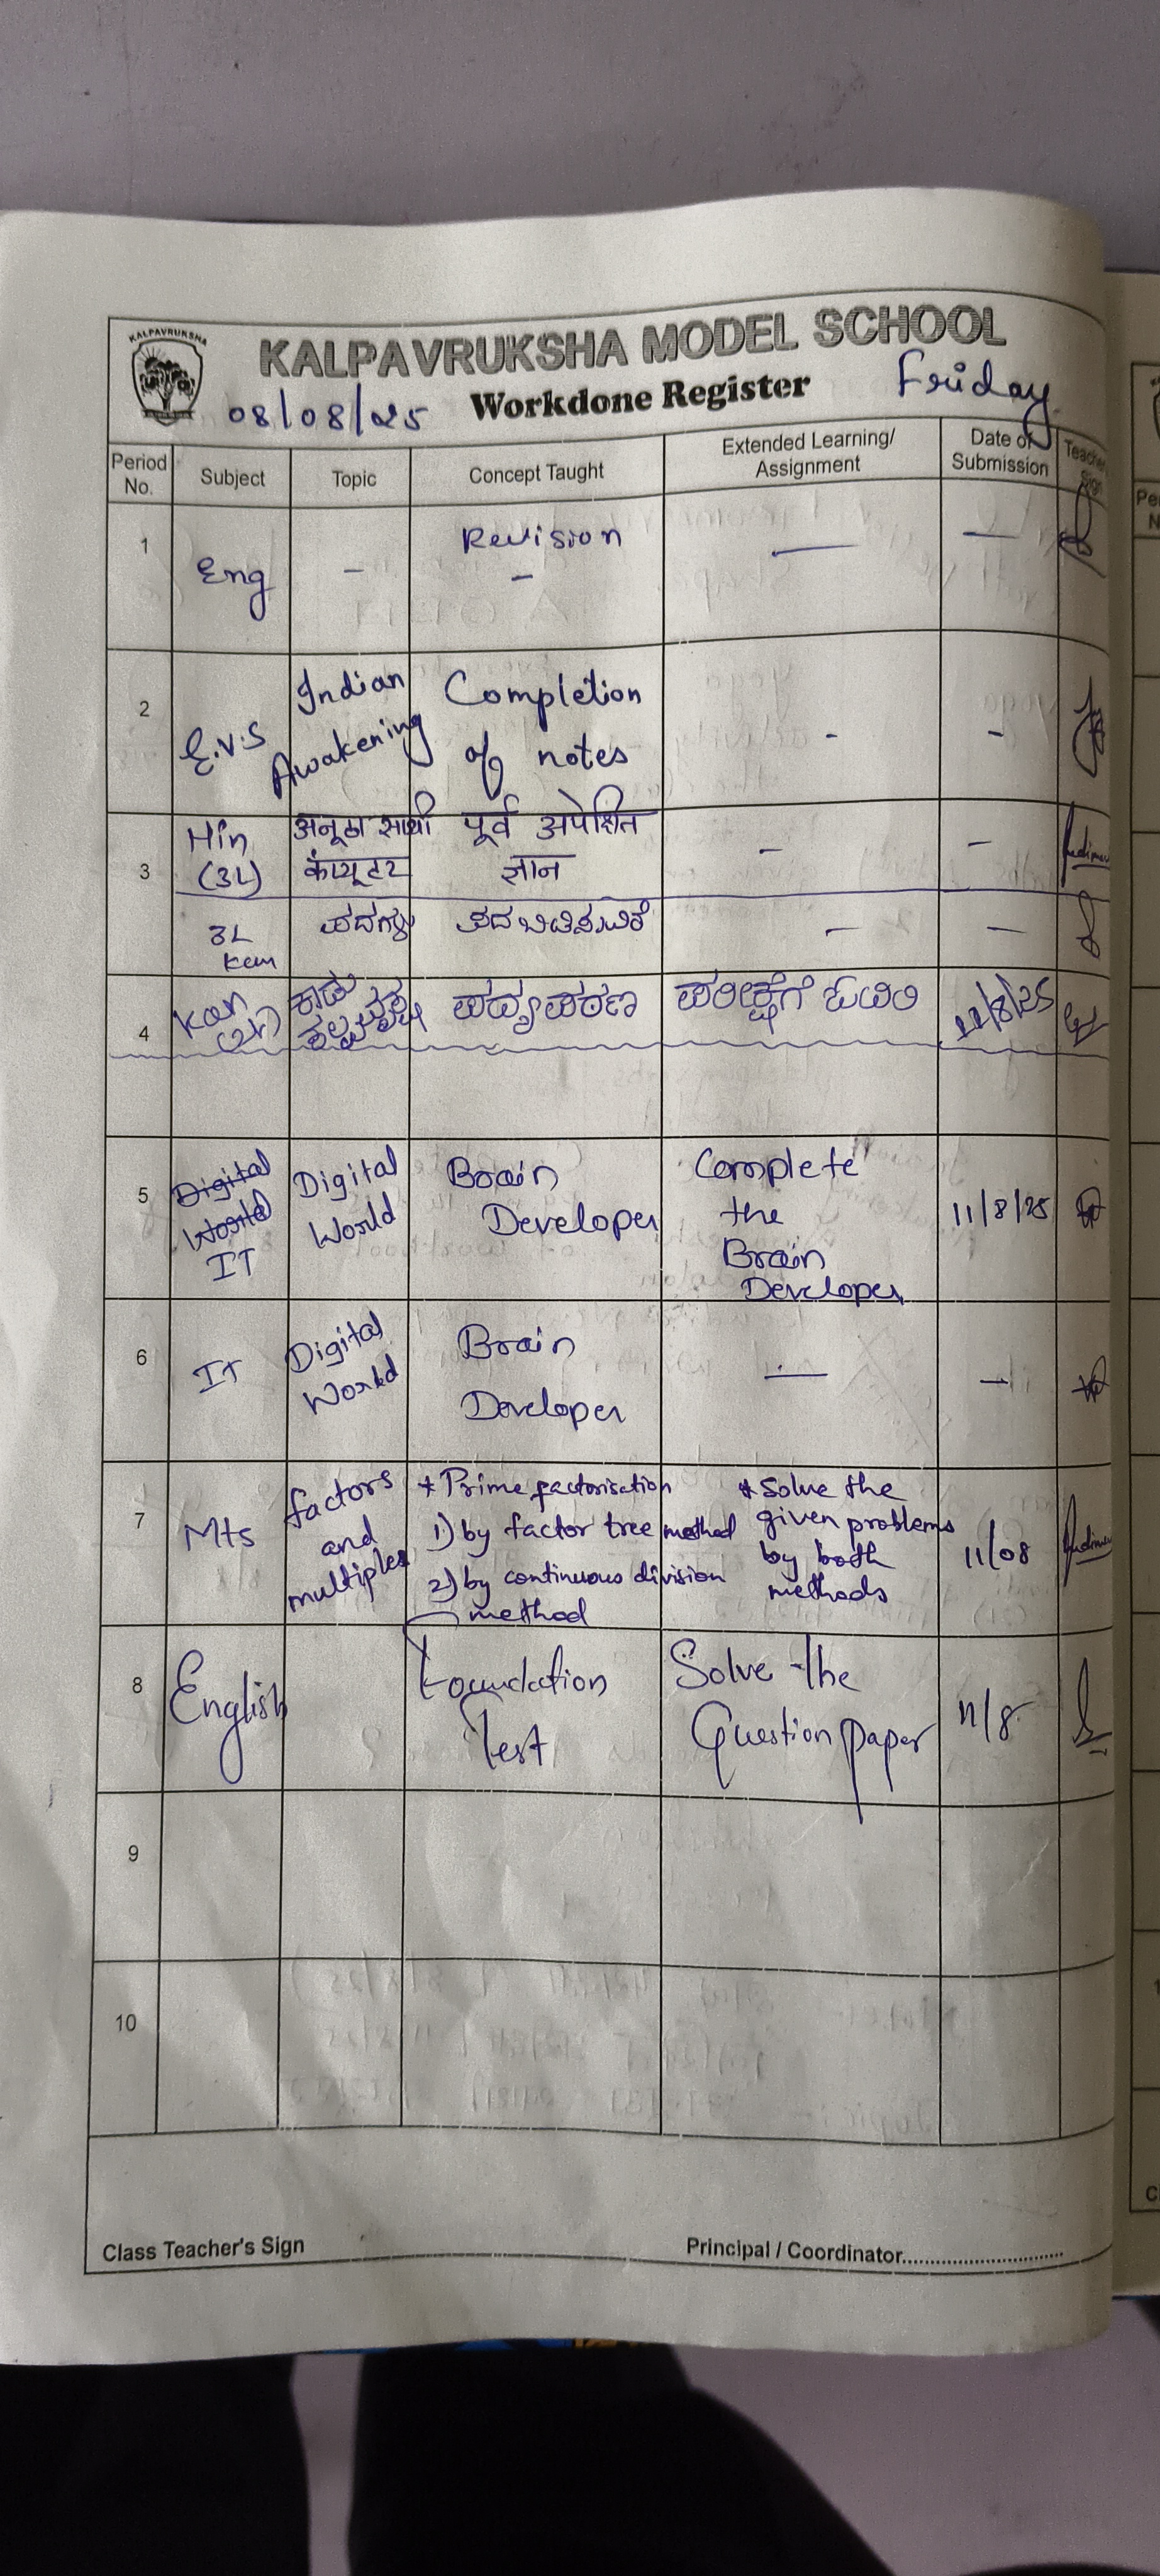 KALPAVRUKSHA
KALPAVRUKSHA MODEL SCHOOL
08/08/25 Workdone Register Friday
Period No. Subject Topic Concept Taught Extended Learning/ Assignment Date of Submission Teacher Sign
1 Eng - Revision - — —
2 E.V.S Indian Awakening Completion of notes - -
3 Hin (3L) अनूठा साथी कंप्यूटर पूर्व अपेक्षित ज्ञान - -
3L Kan ಪದಗಳು ಪದ ಬಿಡಿಸುವಿಕೆ — —
4 Kan ಪದ್ಯ ಪಠಣ ಪರೀಕ್ಷೆಗೆ ಓದಿರಿ 11/8/25
5 Digital World IT Digital World Brain Developer Complete the Brain Developer 11/8/25
6 IT Digital World Brain Developer — —
7 Mts factors and multiples * Prime factorisation 1) by factor tree method 2) by continuous division method * Solve the given problems by both methods 11/08
8 English Foundation Test Solve the Question paper 11/8
9
10
Class Teacher's Sign Principal / Coordinator..............................